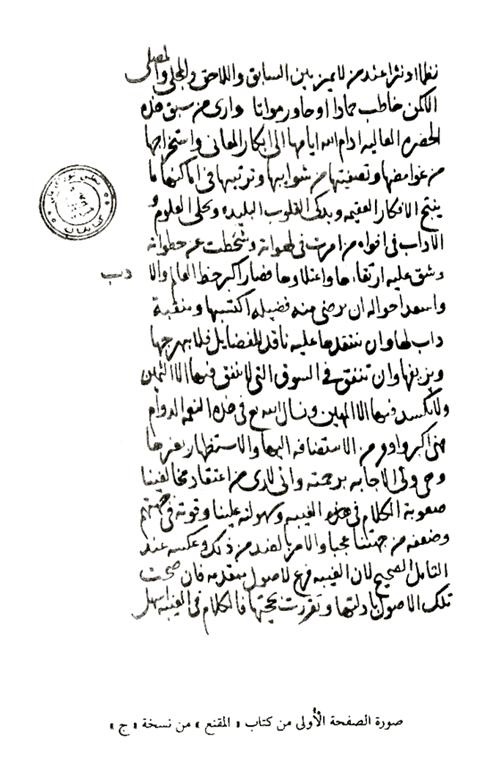 نظما او نثرا عند من لا يميز بين السابق واللاحق والمجلى والمصلى
الالكن خاطب جمادا او حاور مواتا وارى من سبق هذه
الحضره العاليه ادام الله ايامها الى ابكار المعانى واستخراجها
من غوامضها وتصفيتها من شوايبها وترتيبها فى اماكنها ما
ينتج الافكار العقيمه ويذكى القلوب البليده ويحلى العلوم و
الاداب فى افواه من امرت فى لهواته وشحطت عن خطواته
وشق عليه ارتقاءها واعتلاوها فصار اكبر حظ العالم والا دب
واسعد احواله ان يرضى منه فضيله اكتسبها ومنقبة
داب لها وان ينتقدها عليه ناقد الفضايل فلا يبهرجها
ويزيفها وان تنفق فى السوق التى لا ينفق فيها الا الثمين
ولا يكسد فيها الا المهين ونسال الله تع فى هذه النعمه الدوام
فهى اكبر واوفر من الاستضافه اليها والاستظهار بغيرها
وهو ولى الاجابه برحمته وانى لارى من اعتقاد مخالفينا
صعوبة الكلام فى هذه الغيبه وسهولته علينا وقوته فى جهتهم
وضعفه من جهتنا عجبا والامر بالضد من ذلك وعكسه عند
التامل الصحيح لان الغيبه فرع لاصول متقدمه فان صحت
تلك الاصول بادلتها وتقررت بحجتها فالكلام فى الغيبه اسهل
صورة الصفحة الأولى من كتاب «المقنع» من نسخة «ج»